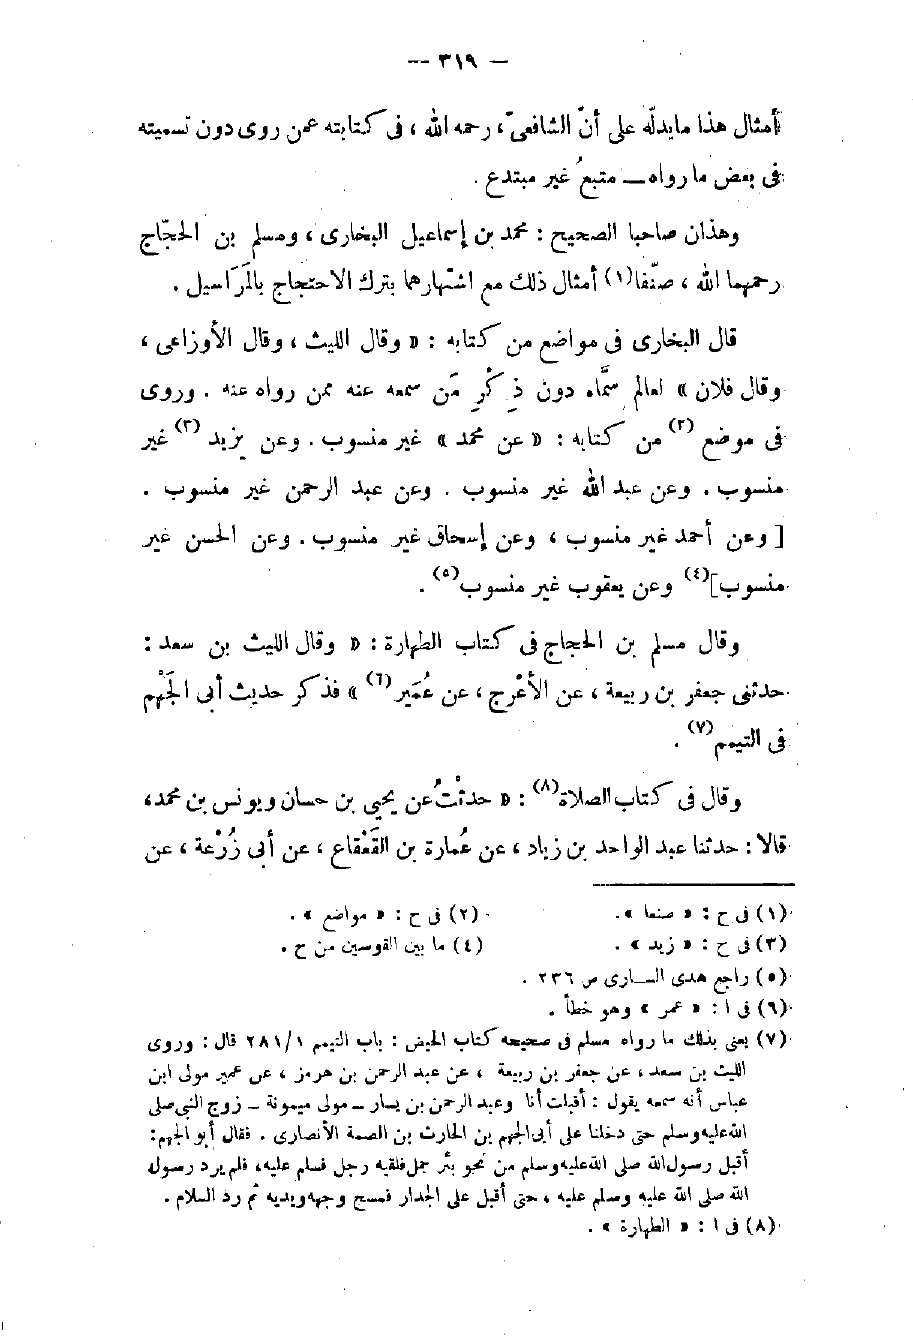 — ٣١٩ —
أمثال هذا ما يدلّه على أنّ الشافعىّ، رحمه الله ، فى كتابته عمن روى دون تسميته
فى بعض ما رواه — متبعٌ غير مبتدع .
وهذان صاحبا الصحيح : محمد بن إسماعيل البخارى ، ومسلم بن الحجّاج
رحمهما الله ، صنّفا(١) أمثال ذلك مع اشتهارهما بترك الاحتجاج بالمَرَاسيل .
قال البخارى فى مواضع من كتابه : « وقال الليث ، وقال الأوزاعى ،
وقال فلان » لعالم سمَّاه دون ذِكْرِ مَن سمعه عنه ممن رواه عنه . وروى
فى موضع (٢) من كتابه : « عن محمد » غير منسوب . وعن يزيد (٣) غير
منسوب . وعن عبد الله غير منسوب . وعن عبد الرحمن غير منسوب .
[ وعن أحمد غير منسوب ، وعن إسحاق غير منسوب . وعن الحسن غير
منسوب](٤) وعن يعقوب غير منسوب(٥) .
وقال مسلم بن الحجاج فى كتاب الطهارة : « وقال الليث بن سعد :
حدثنى جعفر بن ربيعة ، عن الأعْرج ، عن عُمَير(٦) » فذكر حديث أبى الجَهْم
فى التيمم(٧) .
وقال فى كتاب الصلاة(٨) : « حدثْتُ عن يحيى بن حسان ويونس بن محمد،
قالا : حدثنا عبد الواحد بن زياد ، عن عُمارة بن القَعْقاع ، عن أبى زُرْعة ، عن
(١) فى ح : « صنعا ».
(٢) فى ح : « مواضع » .
(٣) فى ح : « زيد » .
(٤) ما بين القوسين من ح .
(٥) راجع هدى السارى ص ٢٣٦ .
(٦) فى ا : « عمر » وهو خطأ .
(٧) يعنى بذلك ما رواه مسلم فى صحيحه كتاب الحيض : باب التيمم ٢٨١/١ قال : وروى
الليث بن سعد ، عن جعفر بن ربيعة ، عن عبد الرحمن بن هرمز ، عن عمير مولى ابن
عباس أنه سمعه يقول : أقبلت أنا وعبد الرحمن بن يسار – مولى ميمونة – زوج النبى صلى
الله عليه وسلم حتى دخلنا على أبى الجهم بن الحارث بن الصمة الأنصارى . فقال أبو الجهم :
أقبل رسول الله صلى الله عليه وسلم من نحو بئر جمل فلقيه رجل فسلم عليه، فلم يرد رسول
الله صلى الله عليه وسلم عليه ، حتى أقبل على الجدار فمسح وجهه ويديه ثم رد السلام .
(٨) فى ا : « الطهارة » .